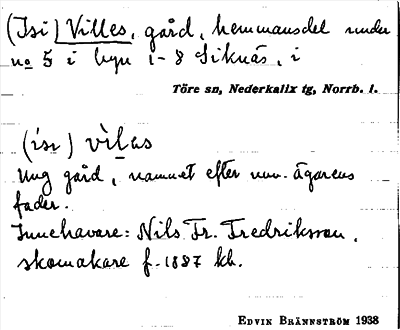 (Isi) Villes, gård, hemmansdel under
no 5 i byn 1-8 Siknäs, i
Töre sn, Nederkalix tg, Norrb. l.
(ìsi) vìlas
Ung gård, namnet efter nuv. ägarens
fader.
Innehavare: Nils Fr. Fredriksson,
skomakare f. 1887 kh.
EDVIN BRÄNNSTRÖM 1938